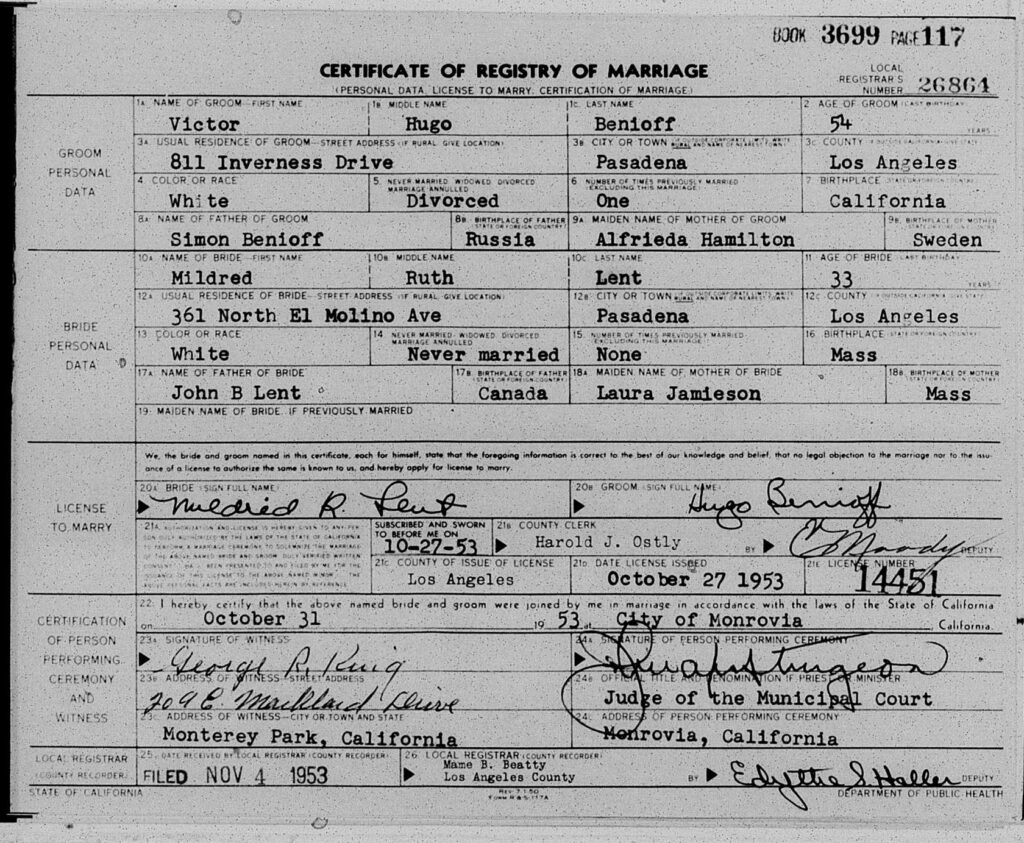 BOOK 3699 PAGE 117
CERTIFICATE OF REGISTRY OF MARRIAGE
(PERSONAL DATA, LICENSE TO MARRY, CERTIFICATION OF MARRIAGE)
LOCAL REGISTRAR'S NUMBER 26864
GROOM PERSONAL DATA
1A. NAME OF GROOM—FIRST NAME 1B. MIDDLE NAME 1C. LAST NAME 2. AGE OF GROOM (LAST BIRTHDAY)
Victor Hugo Benioff 54 YEARS
3A. USUAL RESIDENCE OF GROOM—STREET ADDRESS (IF RURAL, GIVE LOCATION) 3B. CITY OR TOWN 3C. COUNTY
811 Inverness Drive Pasadena Los Angeles
4. COLOR OR RACE 5. NEVER MARRIED, WIDOWED, DIVORCED, MARRIAGE ANNULLED 6. NUMBER OF TIMES PREVIOUSLY MARRIED (EXCLUDING THIS MARRIAGE) 7. BIRTHPLACE (STATE OR FOREIGN COUNTRY)
White Divorced One California
8A. NAME OF FATHER OF GROOM 8B. BIRTHPLACE OF FATHER (STATE OR FOREIGN COUNTRY) 9A. MAIDEN NAME OF MOTHER OF GROOM 9B. BIRTHPLACE OF MOTHER (STATE OR FOREIGN COUNTRY)
Simon Benioff Russia Alfrieda Hamilton Sweden
BRIDE PERSONAL DATA
10A. NAME OF BRIDE—FIRST NAME 10B. MIDDLE NAME 10C. LAST NAME 11. AGE OF BRIDE (LAST BIRTHDAY)
Mildred Ruth Lent 33 YEARS
12A. USUAL RESIDENCE OF BRIDE—STREET ADDRESS (IF RURAL, GIVE LOCATION) 12B. CITY OR TOWN 12C. COUNTY
361 North El Molino Ave Pasadena Los Angeles
13. COLOR OR RACE 14. NEVER MARRIED, WIDOWED, DIVORCED, MARRIAGE ANNULLED 15. NUMBER OF TIMES PREVIOUSLY MARRIED (EXCLUDING THIS MARRIAGE) 16. BIRTHPLACE (STATE OR FOREIGN COUNTRY)
White Never married None Mass
17A. NAME OF FATHER OF BRIDE 17B. BIRTHPLACE OF FATHER (STATE OR FOREIGN COUNTRY) 18A. MAIDEN NAME OF MOTHER OF BRIDE 18B. BIRTHPLACE OF MOTHER (STATE OR FOREIGN COUNTRY)
John B Lent Canada Laura Jamieson Mass
19. MAIDEN NAME OF BRIDE IF PREVIOUSLY MARRIED
LICENSE TO MARRY
We, the bride and groom named in this certificate, each for himself, state that the foregoing information is correct to the best of our knowledge and belief, that no legal objection to the marriage nor to the issu-
ance of a license to authorize the same is known to us, and hereby apply for license to marry.
20A. BRIDE (SIGN FULL NAME) 20B. GROOM (SIGN FULL NAME)
Mildred R. Lent Hugo Benioff
21A. AUTHORIZATION AND LICENSE IS HEREBY GIVEN TO ANY PERSON DULY AUTHORIZED BY THE LAWS OF THE STATE OF CALIFORNIA TO PERFORM A MARRIAGE CEREMONY TO SOLEMNIZE THE MARRIAGE OF THE ABOVE NAMED BRIDE AND GROOM
SUBSCRIBED AND SWORN TO BEFORE ME ON 10-27-53
21B. COUNTY CLERK
Harold J. Ostly BY Moody DEPUTY
21C. COUNTY OF ISSUE OF LICENSE 21D. DATE LICENSE ISSUED 21E. LICENSE NUMBER
Los Angeles October 27 1953 14451
CERTIFICATION OF PERSON PERFORMING CEREMONY AND WITNESS
22. I hereby certify that the above named bride and groom were joined by me in marriage in accordance with the laws of the State of California
on October 31 1953 at City of Monrovia California.
23A. SIGNATURE OF WITNESS 24A. SIGNATURE OF PERSON PERFORMING CEREMONY
George R. King Sturgeon
23B. ADDRESS OF WITNESS—STREET ADDRESS 24B. OFFICIAL TITLE AND DENOMINATION IF PRIEST OR MINISTER
209 E. Markland Drive Judge of the Municipal Court
23C. ADDRESS OF WITNESS—CITY OR TOWN AND STATE 24C. ADDRESS OF PERSON PERFORMING CEREMONY
Monterey Park, California Monrovia, California
LOCAL REGISTRAR (COUNTY RECORDER)
25. DATE RECEIVED BY LOCAL REGISTRAR (COUNTY RECORDER) 26. LOCAL REGISTRAR (COUNTY RECORDER)
FILED NOV 4 1953 Mame B. Beatty
Los Angeles County BY Edyttie S. Haller DEPUTY
STATE OF CALIFORNIA REV. 7-1-50 DEPARTMENT OF PUBLIC HEALTH